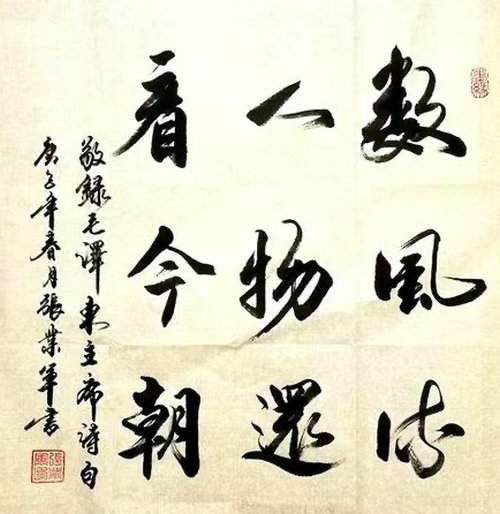 数風流
人物還
看今朝
敬録毛澤東主席詩句
庚子年春月張業軍書